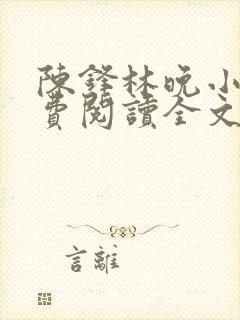 陳鋒林晚小
費閱讀全文
言離